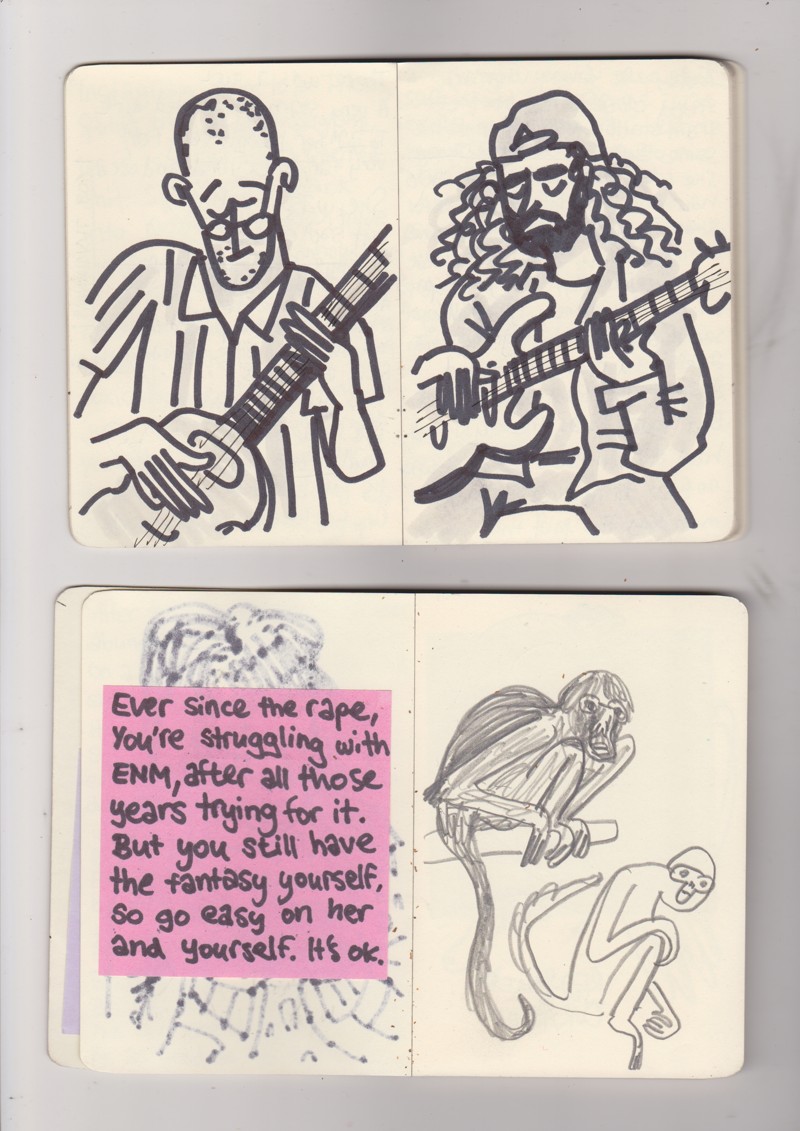 Ever since the rape,
You're struggling with
ENM, after all those
years trying for it.
But you still have
the fantasy yourself,
so go easy on her
and yourself. It's ok.